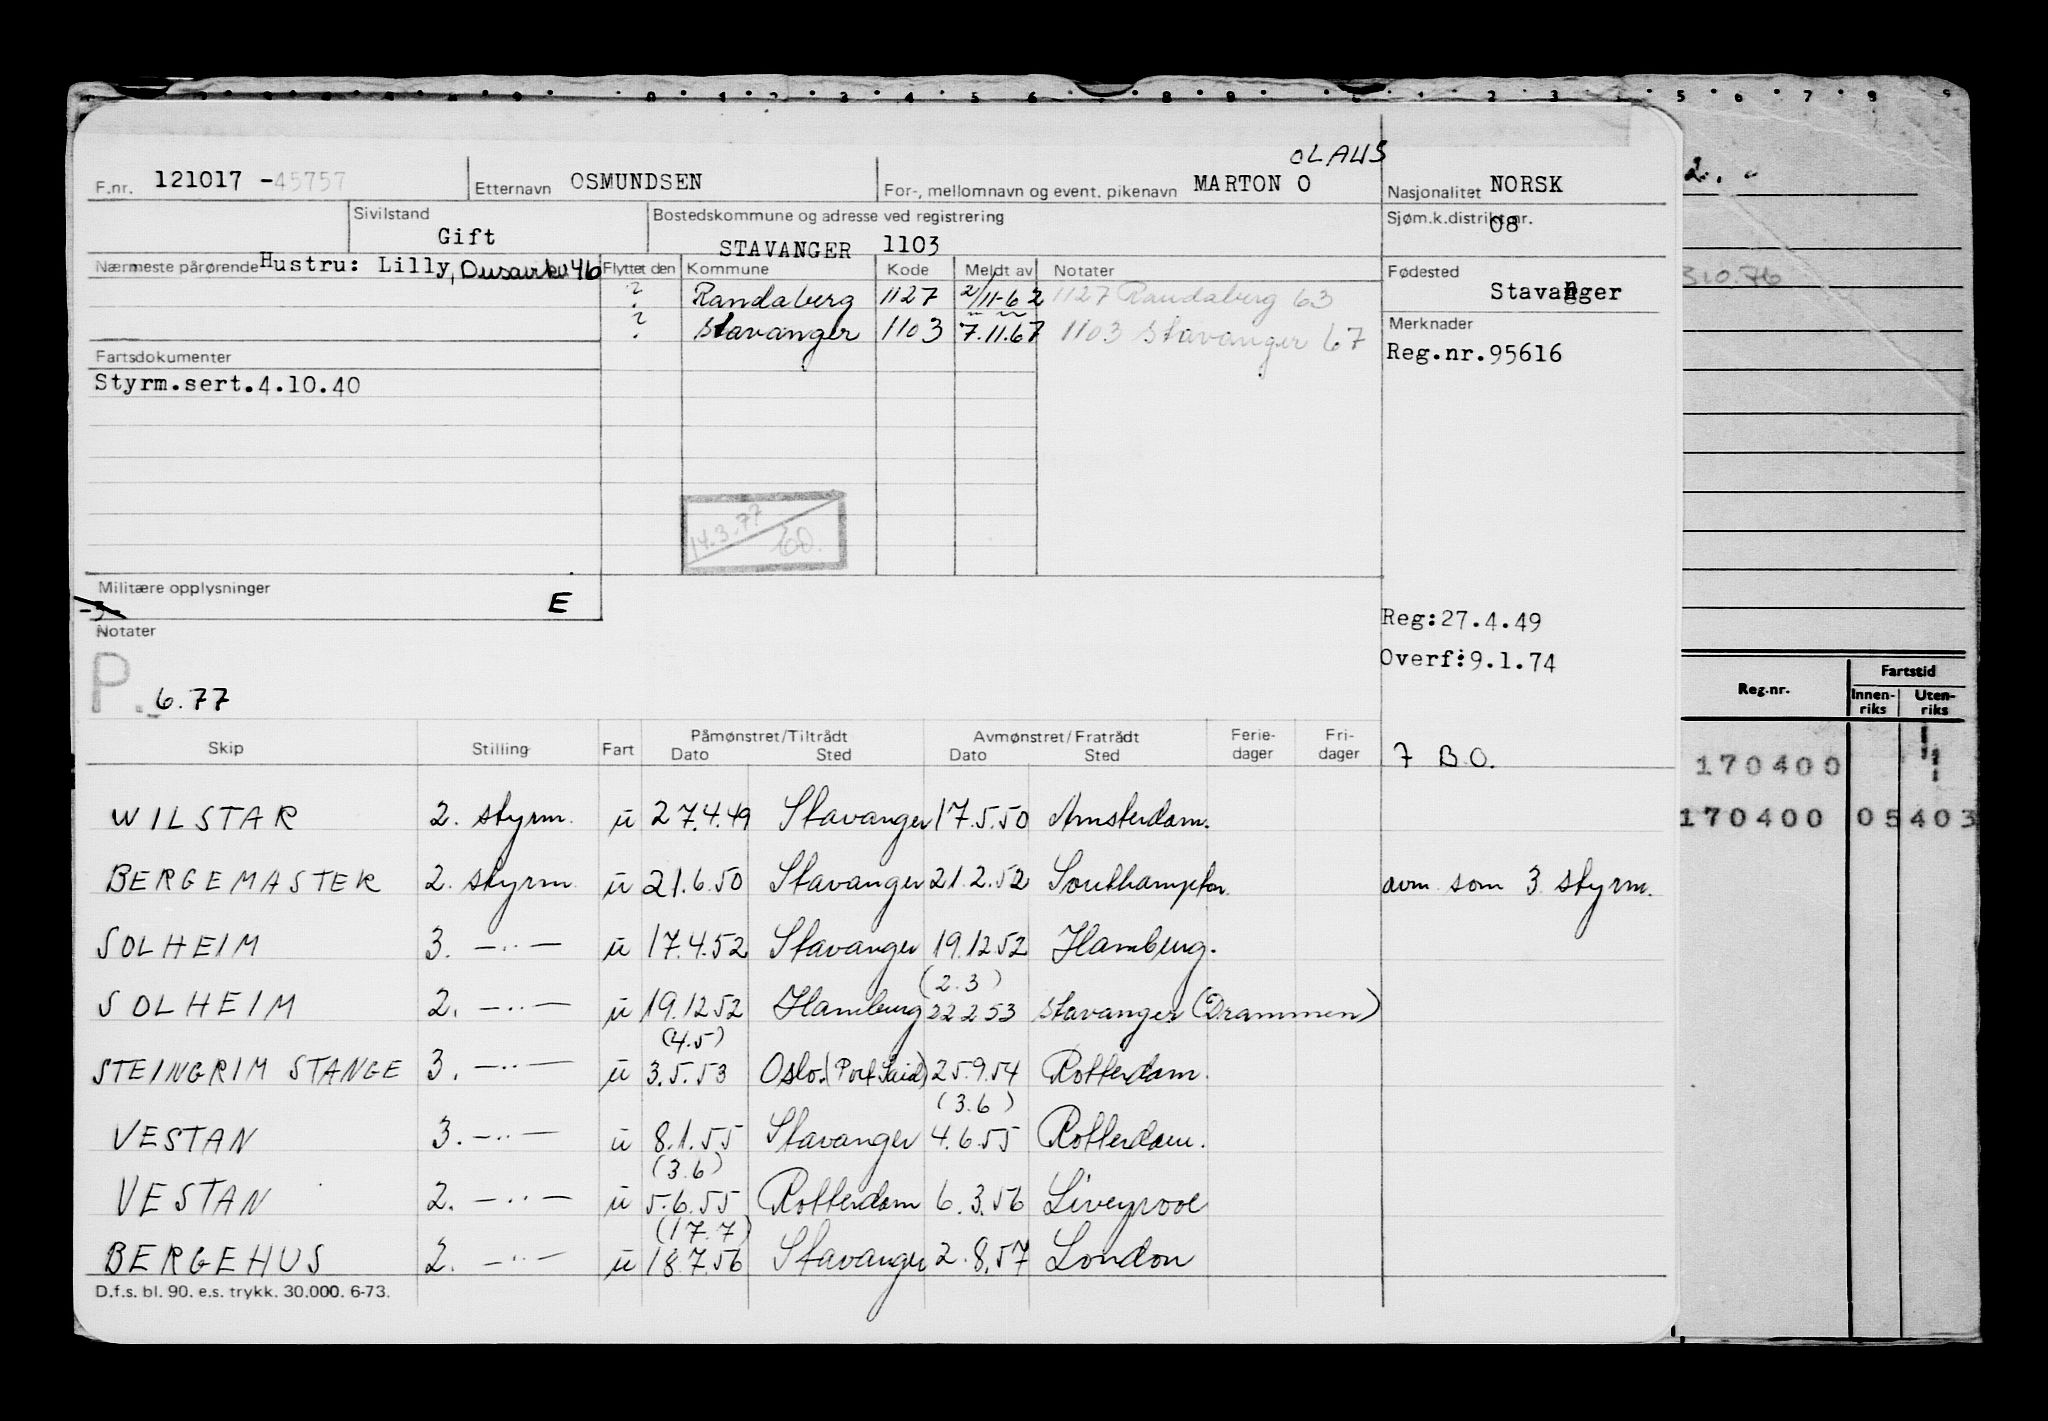 OLAUS
F.nr. 121017 -45757 Etternavn OSMUNDSEN For-, mellomnavn og event. pikenavn MARTON O Nasjonalitet NORSK
Sivilstand Gift Bostedskommune og adresse ved registrering STAVANGER 1103 Sjøm.k.distrikt nr. 08
Nærmeste pårørende Hustru: Lilly, Flyttet den Kommune Kode Meldt av Notater Fødested Stavanger
? Randaberg 1127 2/11-62 1127 Randaberg 63
? Stavanger 1103 7.11.67 1103 Stavanger 67
Merknader
Reg.nr.95616
Fartsdokumenter
Styrm.sert.4.10.40
14.3.77
Militære opplysninger E
-3-
Notater
P. 6.77
Reg:27.4.49
Overf:9.1.74
Skip Stilling Fart Påmønstret/Tiltrådt Dato Sted Avmønstret/Fratrådt Dato Sted Ferie- dager Fri- dager 7 B.O.
WILSTAR 2. styrm. u 27.4.49 Stavanger 17.5.50 Amsterdam.
BERGEMASTER 2. styrm u 21.6.50 Stavanger 21.2.52 Southampton. avm som 3 styrm.
SOLHEIM 3. -..- u 17.4.52 Stavanger 19.12.52 Hamburg.
(2.3)
SOLHEIM 2. -..- u 19.12.52 Hamburg 22.2.53 Stavanger (Drammen)
(4.5)
STEINGRIM STANGE 3. -..- u 3.5.53 Oslo. (Port Said) 25.9.54 Rotterdam.
(3.6)
VESTAN 3. -..- u 8.1.55 Stavanger 4.6.55 Rotterdam.
(3.6)
VESTAN 2. -..- u 5.6.55 Rotterdam 6.3.56 Liverpool
(17.7)
BERGEHUS 2. -..- u 18.7.56 Stavanger 2.8.57 London
D.f.s. bl. 90. e.s. trykk. 30.000. 6-73.
2. "
310.76
Reg.nr. Fartstid
Innen- riks Uten- riks
170400
170400 05 403